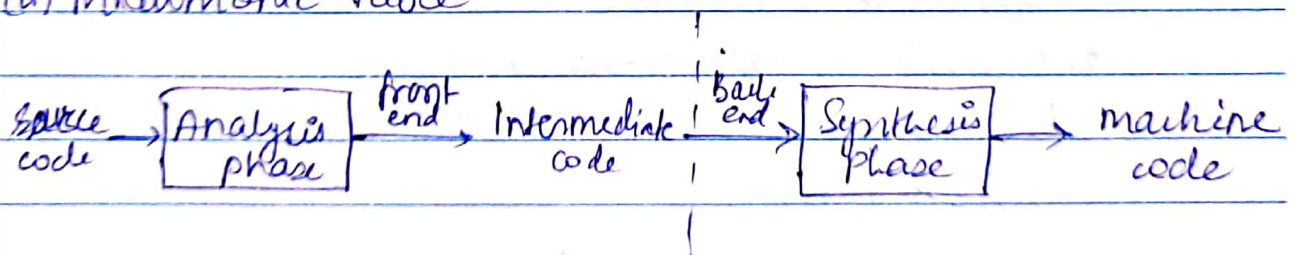 Source code
Analysis phase
front end
Intermediate code
Back end
Synthesis phase
machine code